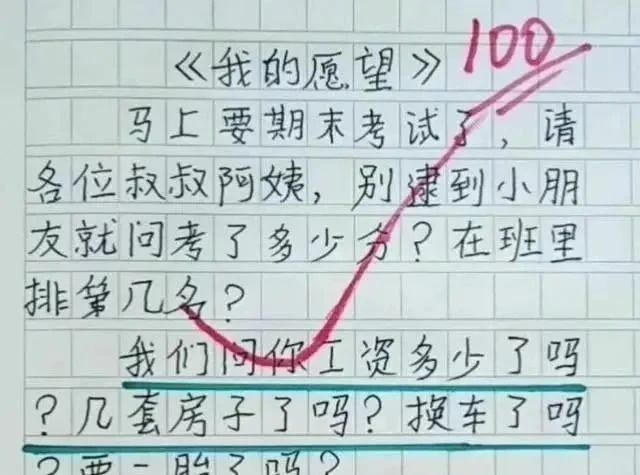 《我的愿望》 100
马上要期末考试了，请
各位叔叔阿姨，别逮到小朋
友就问考了多少分？在班里
排第几名？
我们问你工资多少了吗
？几套房子了吗？换车了吗
？要二胎了吗？